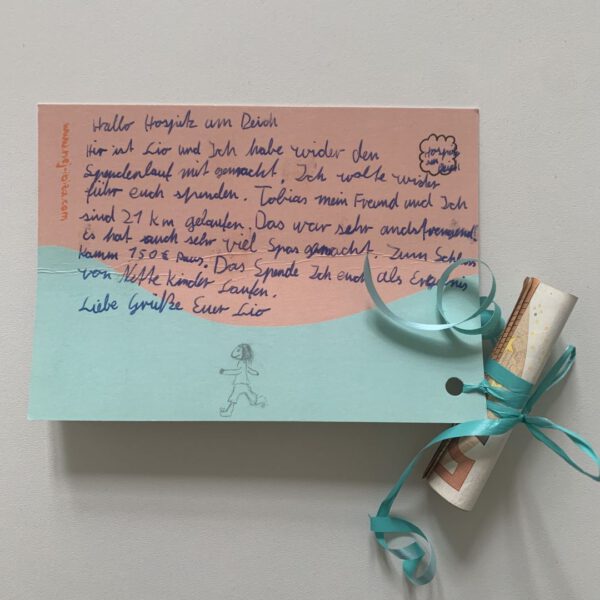 Hallo Hospitz am Deich
Hir ist Lio und Ich habe wider den
Spendenlauf mit gemacht. Ich wolte wider
führ euch spenden. Tobias mein Freund und Ich
sind 21 km gelaufen. Das war sehr anstrengend.
Es hat auch sehr viel Spas gemacht. Zum Schluss
kamm 150€ raus. Das Spende Ich euch als Ergebnis
von Nette Kinder Laufen.
Liebe Grüße Euer Lio
Hospitz
am Deich